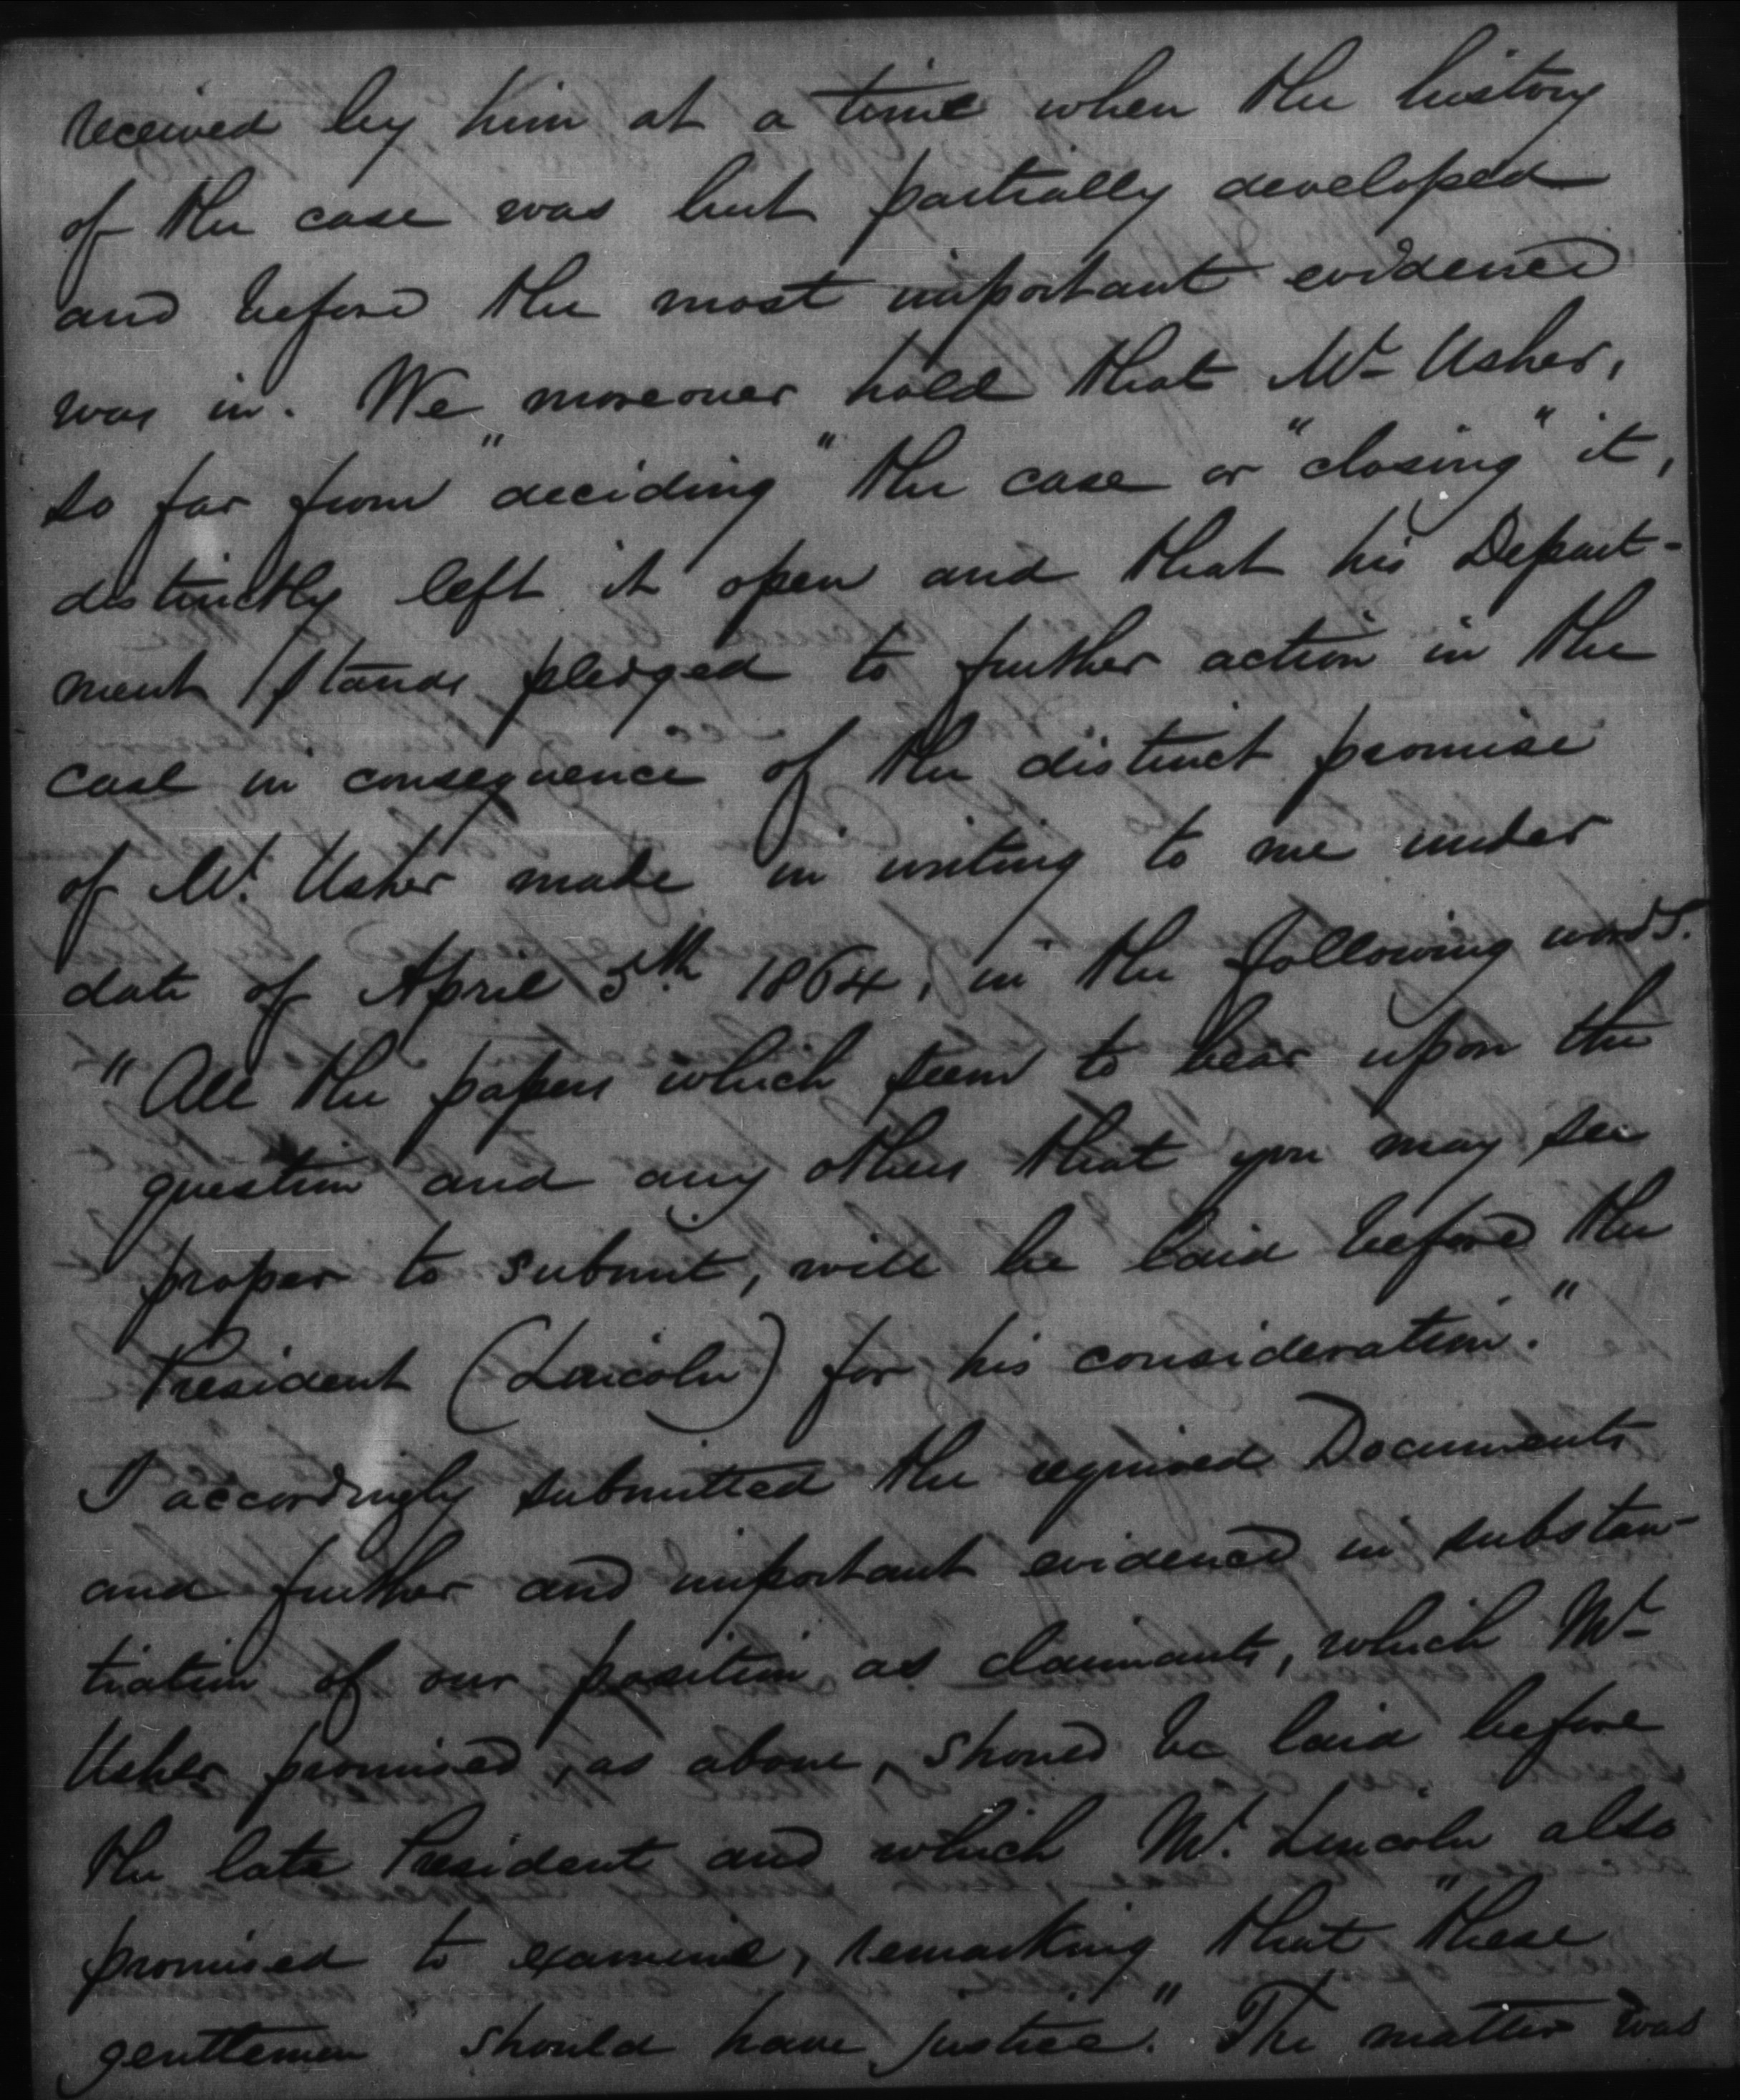 received by him at a time when the history
of the case was but partially developed
and before the most important evidence
was in. We moreover hold that Mr Usher,
so far from "deciding" the case or "closing" it,
distinctly left it open and that his Depart-
ment stands pledged to further action in the
case in consequence of the distinct promise
of Mr. Usher made in writing to me under
date of April 5th 1864, in the following words.
"All the papers which seem to bear upon the
question and any others that you may see
proper to submit, will be laid before the
President (Lincoln) for his consideration."
I accordingly submitted the required Documents
and further and important evidence in substan-
tiation of our position as claimants, which Mr
Usher promised, as above, should be laid before
the late President and which Mr. Lincoln also
promised to examine, remarking that "these
gentlemen should have justice." The matter was